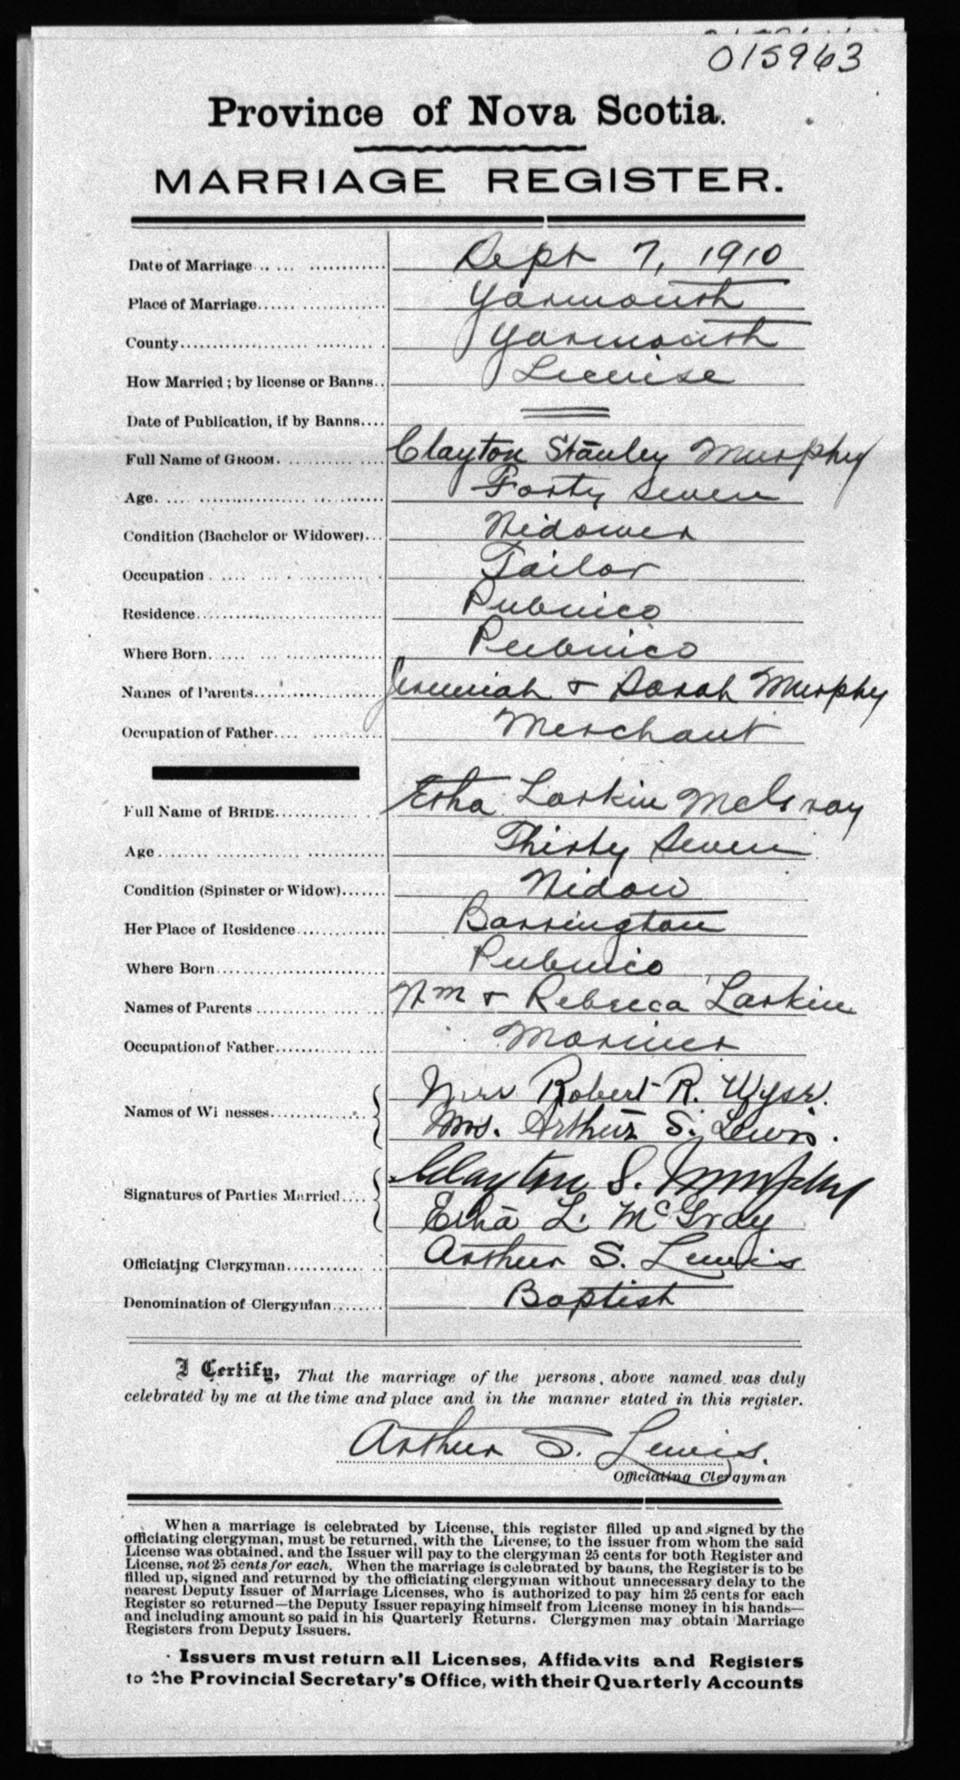 015963
Province of Nova Scotia.
MARRIAGE REGISTER.
Date of Marriage Sept 7, 1910
Place of Marriage Yarmouth
County Yarmouth
How Married; by license or Banns License
Date of Publication, if by Banns
Full Name of GROOM Clayton Stanley Murphy
Age Forty Seven
Condition (Bachelor or Widower) Widower
Occupation Tailor
Residence Pubnico
Where Born Pubnico
Names of Parents Jeremiah & Sarah Murphy
Occupation of Father Merchant
Full Name of BRIDE Larkin McGray
Age Thirty Seven
Condition (Spinster or Widow) Widow
Her Place of Residence Barrington
Where Born Pubnico
Names of Parents Wm & Rebecca Larkin
Occupation of Father Mariner
Names of Wi nesses Robert R.
Mrs. Arthur S. Lewis.
Signatures of Parties Married Clayton S. Murphy
L. McGray
Officiating Clergyman Arthur S. Lewis
Denomination of Clergyman Baptist
I Certify, That the marriage of the persons, above named was duly
celebrated by me at the time and place and in the manner stated in this register.
Arthur S. Lewis.
Officiating Clergyman
When a marriage is celebrated by License, this register filled up and signed by the
officiating clergyman, must be returned, with the License, to the issuer from whom the said
License was obtained, and the Issuer will pay to the clergyman 25 cents for both Register and
License, not 25 cents for each. When the marriage is celebrated by banns, the Register is to be
filled up, signed and returned by the officiating clergyman without unnecessary delay to the
nearest Deputy Issuer of Marriage Licenses, who is authorized to pay him 25 cents for each
Register so returned—the Deputy Issuer repaying himself from License money in his hands—
and including amount so paid in his Quarterly Returns. Clergymen may obtain Marriage
Registers from Deputy Issuers.
Issuers must return all Licenses, Affidavits and Registers
to the Provincial Secretary's Office, with their Quarterly Accounts